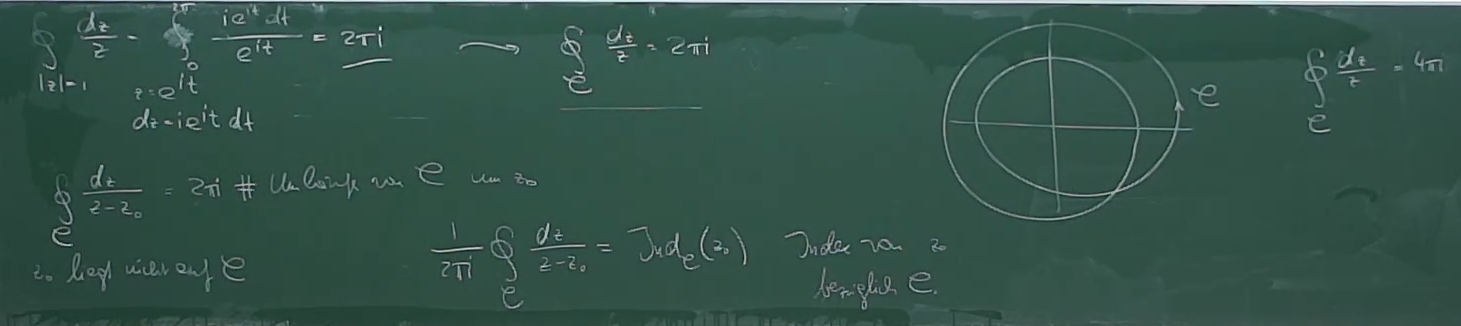 ∮_{|z|=1} dz/z = ∮_0^{2π} ie^{it} dt / e^{it} = 2πi ⟿ ∮_C dz/z = 2πi
z = e^{it}
dz = ie^{it} dt
C
∮_C dz/z = 4πi
∮_C dz/(z-z_0) = 2πi # Umläufe von C um z_0
z_0 liegt nicht auf C
1/(2πi) ∮_C dz/(z-z_0) = Ind_C(z_0) Index von z_0
bezüglich C.